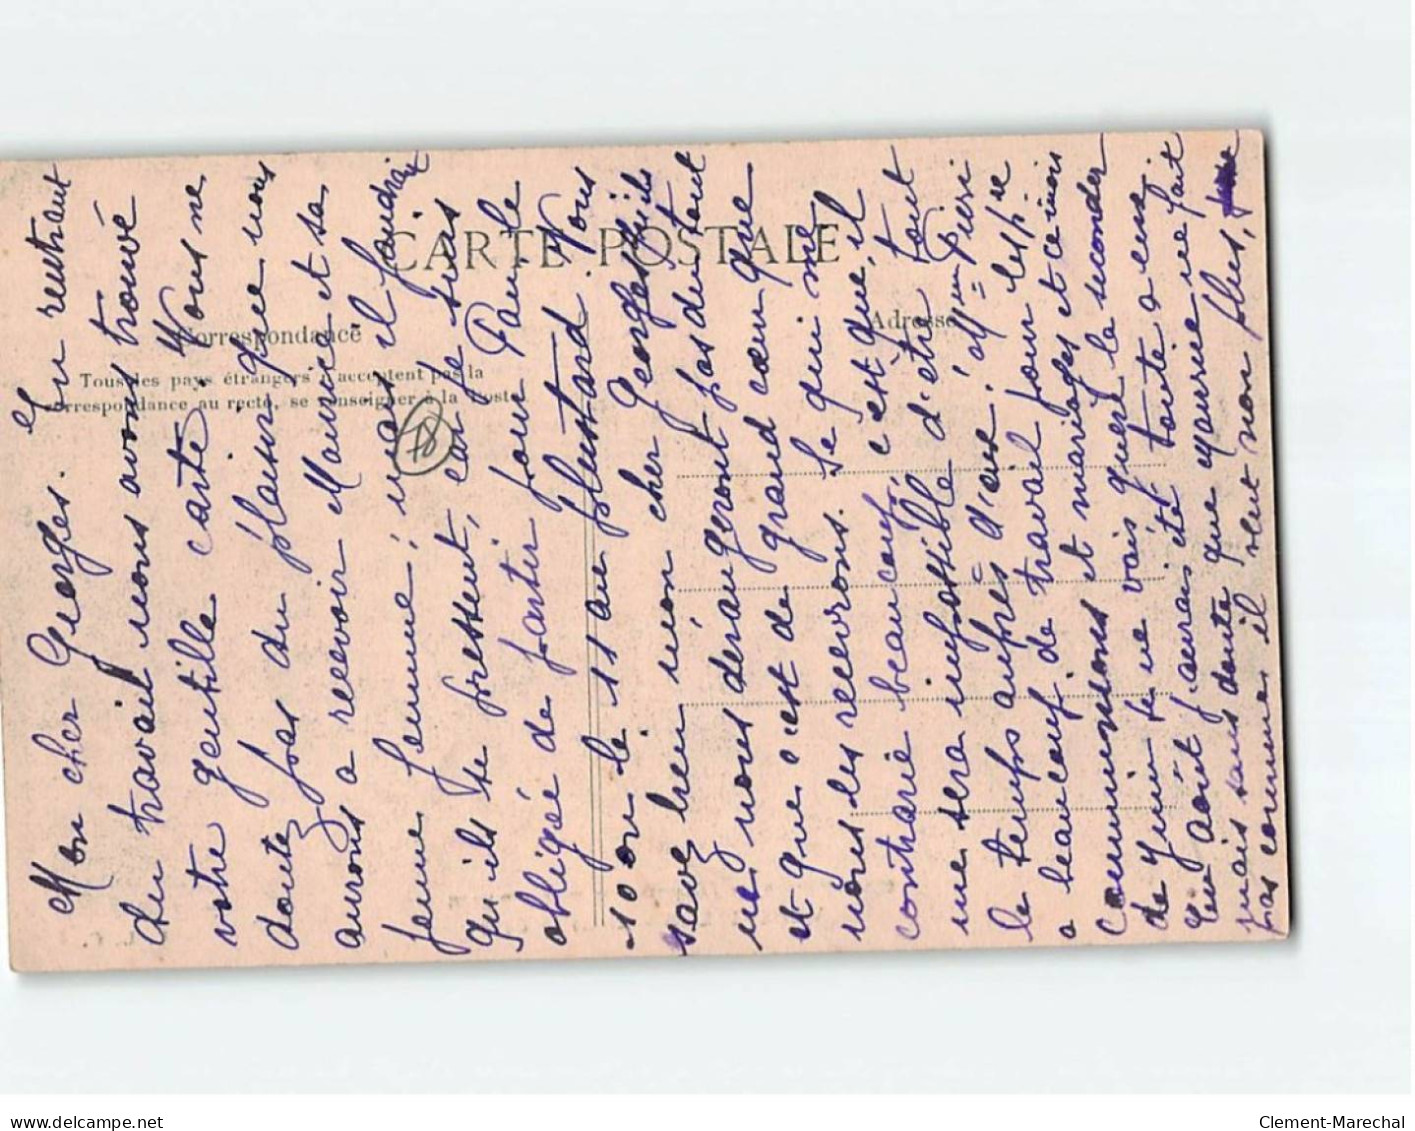 Mon cher Georges. En rentrant
du travail nous avons trouvé
votre gentille carte. Vous ne
doutez pas du plaisir que nous
aurons a recevoir Maurice et sa
jeune femme; mais il faudrait
qu'ils se pressent, car je suis
obligée de partir pour Paris le
10 ou le 11 au plus tard. Vous
savez bien mon cher Georges qu'ils
ne nous dérangeront pas du tout
et que c'est de grand cœur que
nous les recevrons. Ce qui me
contrarie beaucoup, c'est que, il
me sera impossible d'être tout
le temps auprès d'eux! Mme
a beaucoup de travail pour les 1re
communions et mariages et ce mois
de Juin je ne vais guère la seconder
En Aout j'aurais été toute a eux
mais sans doute que Maurice ne fait
pas comme il veut non plus,
CARTE POSTALE
Correspondance
Adresse
Tous les pays étrangers n'acceptent pas la
correspondance au recto, se renseigner à la Poste
78
delcampe.net
Clement-Marechal